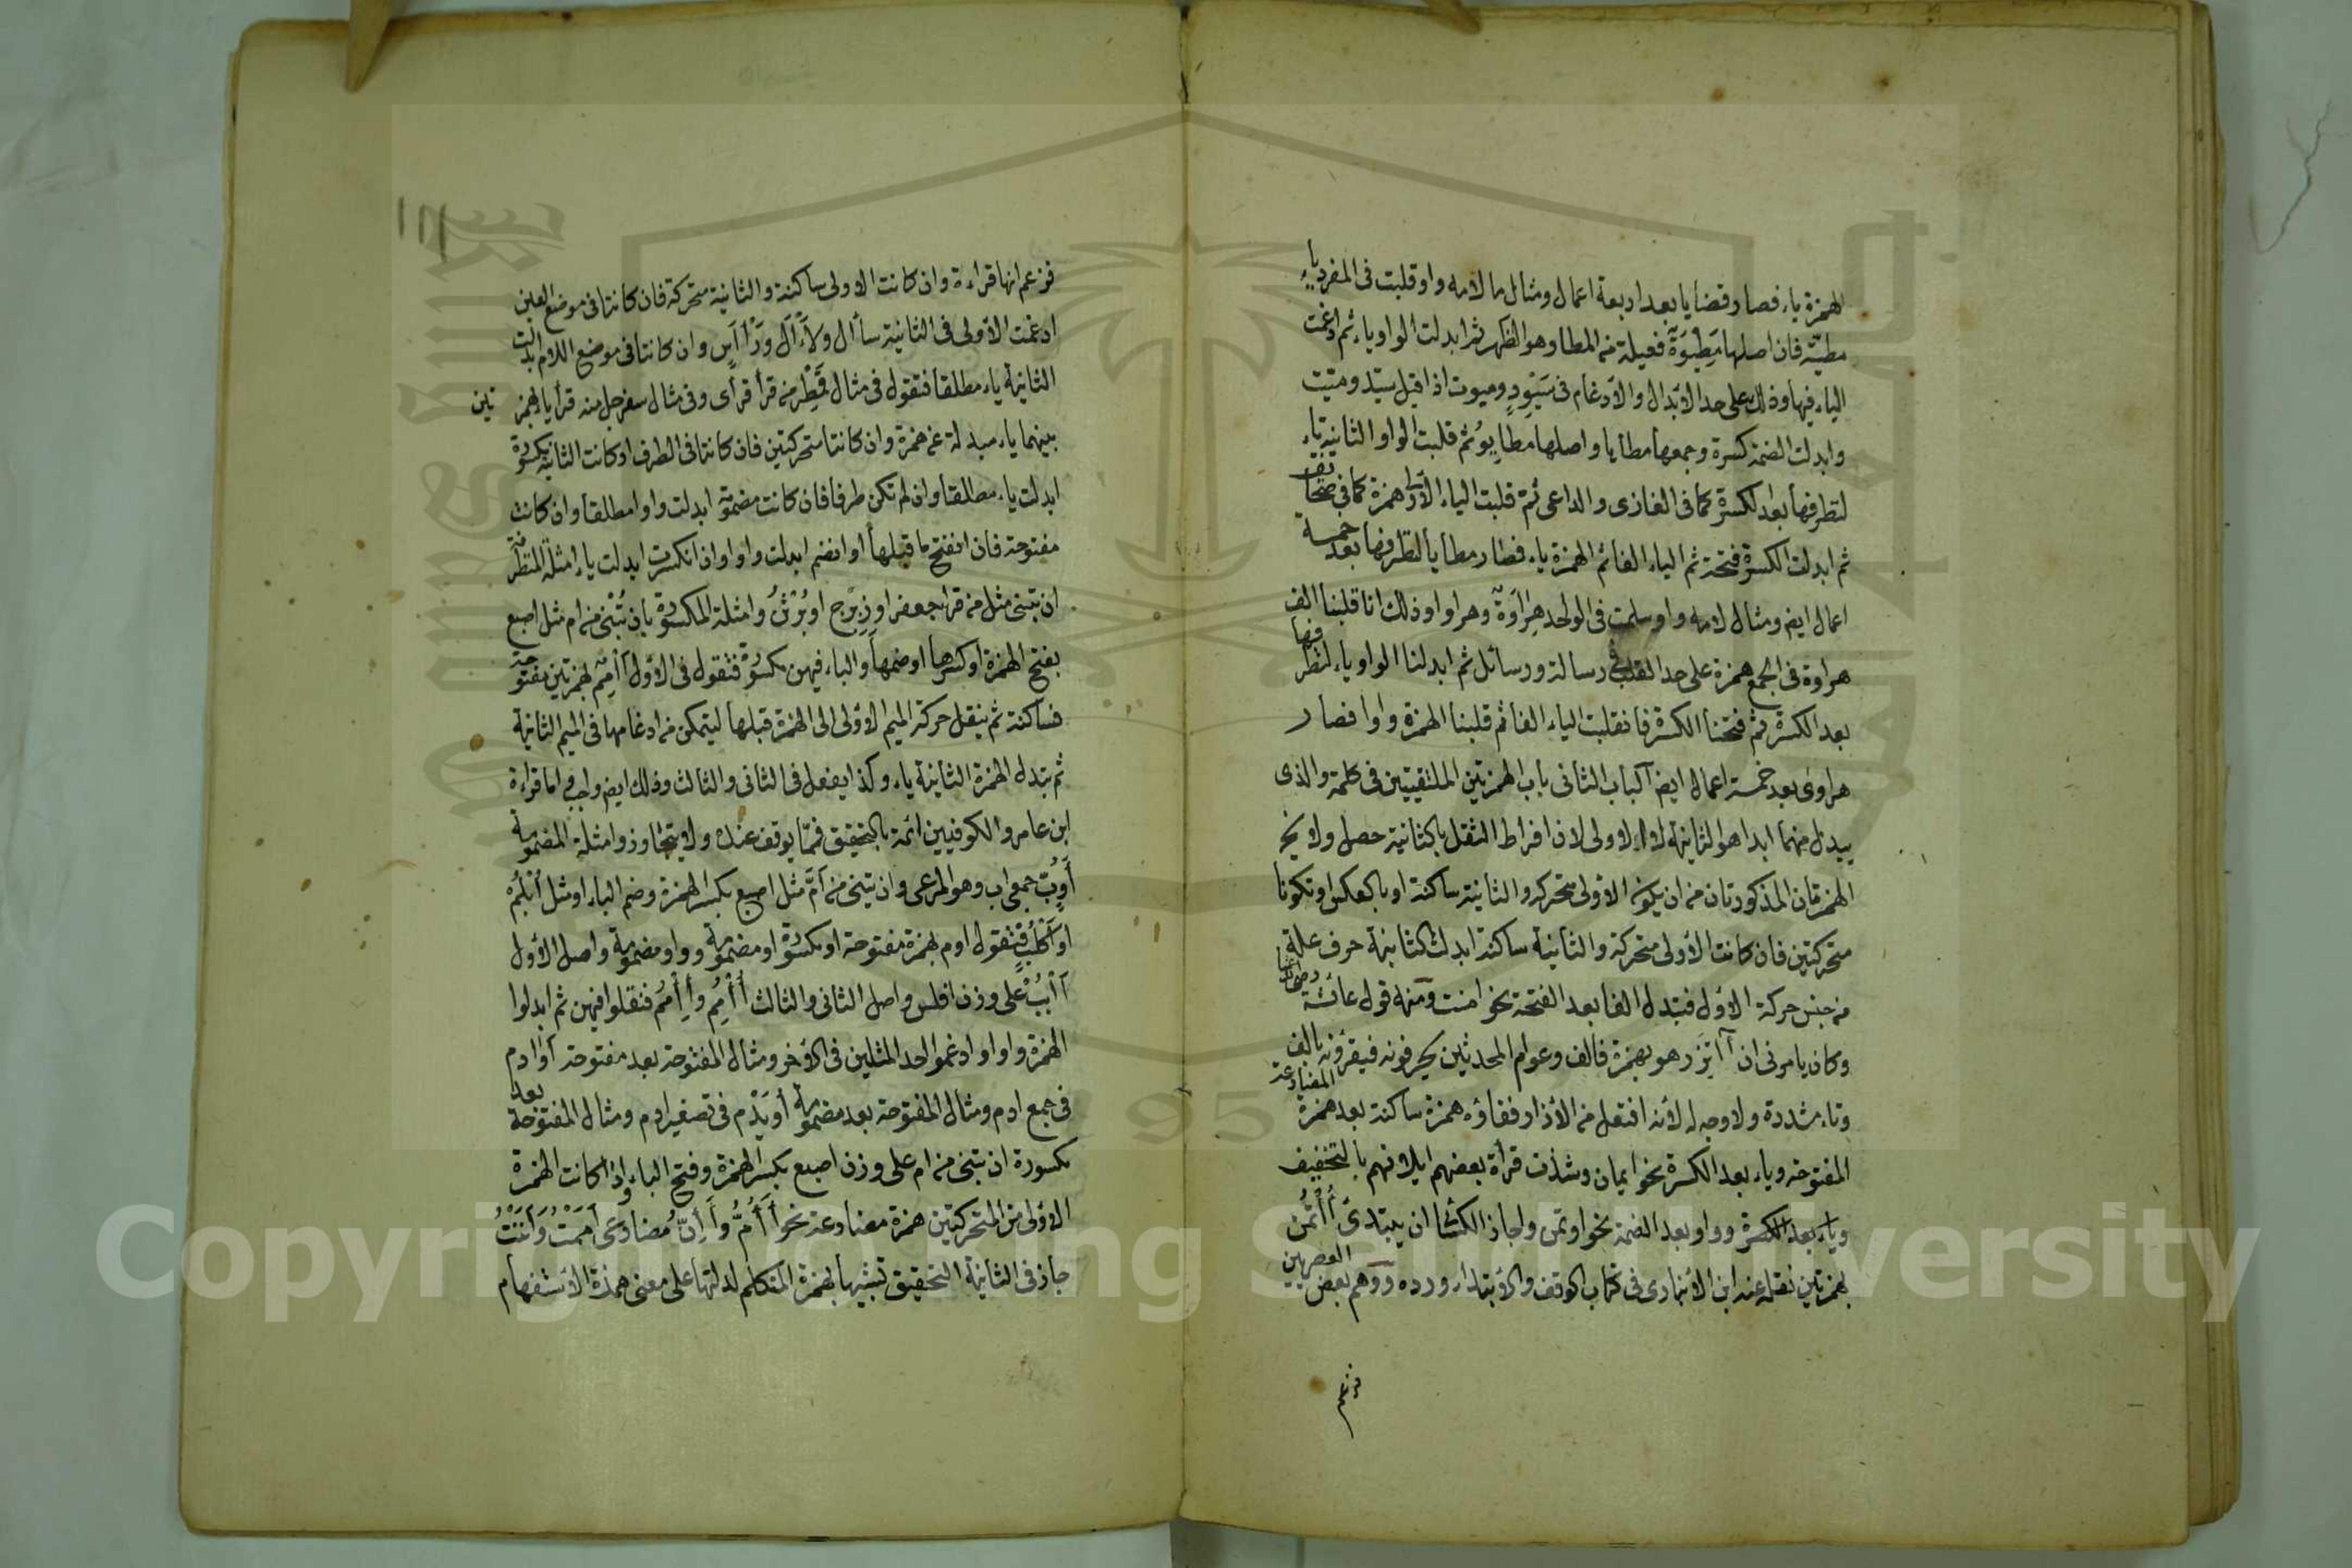 الهمزة ياء فصار قضايا بعد اربعة اعمال ومثال ما لامه واو قلبت فى المفرد ياء
مطيّة فان اصلها مَطِيْوَةٌ فعيلة من المطا وهو الظهر ثم ابدلت الواو ياء ثم ادغمت
الياء فيها وذلك على حد الابدال والادغام فى سَيْوِدٍ وميوت اذا قيل سيّد وميّت
وابدلت الضمة كسرة وجمعها مطايا واصلها مطايِوُ ثم قلبت الواو الثانية ياء
لتطرفها بعد الكسرة كما فى الغازى والداعى ثم قلبت الياء الاولى همزة كما فى صحائف
ثم ابدلت الكسرة فتحة ثم الياء الفا ثم الهمزة ياء فصار مطايا لتطرفها بعد خمسة
اعمال ايضا ومثال لامه واو سلمت فى الواحد هِرَاوَةٌ وهراوا وذلك انا قلبنا الف
هراوة فى الجمع همزة على حد القلب فى رسالة ورسائل ثم ابدلنا الواو ياء لتطرفها
بعد الكسرة ثم فتحنا الكسرة فانقلبت الياء الفا ثم قلبنا الهمزة واوا فصار
هراوى بعد خمسة اعمال ايضا الباب الثانى باب الهمزتين الملتقيتين فى كلمة والذى
يبدل منهما ابدا هو الثانية لا الاولى لان افراط الثقل بالثانية حصل ولا يخ
الهمزتان المذكورتان من ان يكون الاولى متحركه والثانية ساكنة او بالعكس او تكونا
متحركتين فان كانت الاولى متحركة والثانية ساكنة ابدلت الثانية حرف علة
من جنس حركة الاول فتبدل الفا بعد الفتحة نحو امنت ومنه قول عائشة رضى الله عنها
وكان يامرنى ان آاتزر هو بهمزة فالف وعوام المحدثين يحرفونه فيقرؤنه بالف
وتاء مشددة ولا وجه له لانه افتعل من الازار ففاؤه همزة ساكنة بعد همزة المضارعة
المفتوحة وياء بعد الكسرة نحو ايمان وشذت قراة بعضهم ايلافهم بالتخفيف
وياء بعد الكسرة وواو بعد الضمة نحو اوتمن واجاز الكسائى ان يبتدئ أُأْتُمن
بهمزتين نقله عنه ابن الانبارى فى كتاب الوقف والابتداء ورده ووهم بعض العصريين
فزعم
١١١
فزعم انها قراءة وان كانت الاولى ساكنة والثانية متحركة فان كانتا فى موضع العين
ادغمت الاولى فى الثانية سأال ولأال ورأاس وان كانتا فى موضع اللام ابدلت
الثانية ياء مطلقا فتقول فى مثال قَمِطْر من قرأ قرأى وفى مثال سفرجل منه قرأيا بهمزتين
بينهما ياء مبدلة عن همزة وان كانتا متحركتين فان كانتا فى الطرف او كانت الثانية مكسورة
ابدلت ياء مطلقا وان لم تكن طرفا فان كانت مضمومة ابدلت واوا مطلقا وان كانت
مفتوحة فان انفتح ما قبلها او انضم ابدلت واوا وان انكسرت ابدلت ياء امثلة المتطرفة
ان تبنى مثل من قرأ جعفر او زِبْرِج او بُرْثُن وامثلة المكسورة بان تُبْنَى من ام مثل اصبع
بفتح الهمزة او كسرها او ضمها والباء فيهن مكسورة فتقول فى الاول أَأْمِمٌ بهمزتين مفتوحة
فساكنة ثم ينقل حركة الميم الاولى الى الهمزة قبلها ليتمكن من ادغامها فى الميم الثانية
ثم تبدل الهمزة الثانية ياء وكذا يفعل فى الثانى والثالث وذلك ايضا واجب اما قراءة
ابن عامر والكوفيين ائمة بالتحقيق فمما يوقف عنده ولا يتجاوز وامثلة المضمومة
أَوُبٌّ جمع اب وهو المرعى وان تبنى من أمّ مثل اصبع بكسر الهمزة وضم الباء او مثل أُبْلُمٌ
فتقول اوم بهمزة مفتوحة او مكسورة او مضمومة وواو مضمومة واصل الاول
أَأْبُبٌ على وزن افلس واصل الثانى والثالث أُأْمُم وإِأْمُم فنقلوا فيهن ثم ابدلوا
الهمزة واوا وادغموا احد المثلين فى الاخر ومثال المفتوحة بعد مفتوحة اوادم
فى جمع ادم ومثال المفتوحة بعد مضمومة أُوَيْدِم فى تصغير ادم ومثال المفتوحة بعد
مكسورة ان تبنى من ام على وزن اصبع بكسر الهمزة وفتح الباء واذا كانت الهمزة
الاولى من المتحركتين همزة مضارعة نحو أَؤُمُّ وأَئِنُّ مضارعى أَمَمْتُ وَأَنَنْتُ
جاز فى الثانية التحقيق تشبيها بهمزة المتكلم لدلالتها على معنى همزة الاستفهام
Copyright © King Saud University